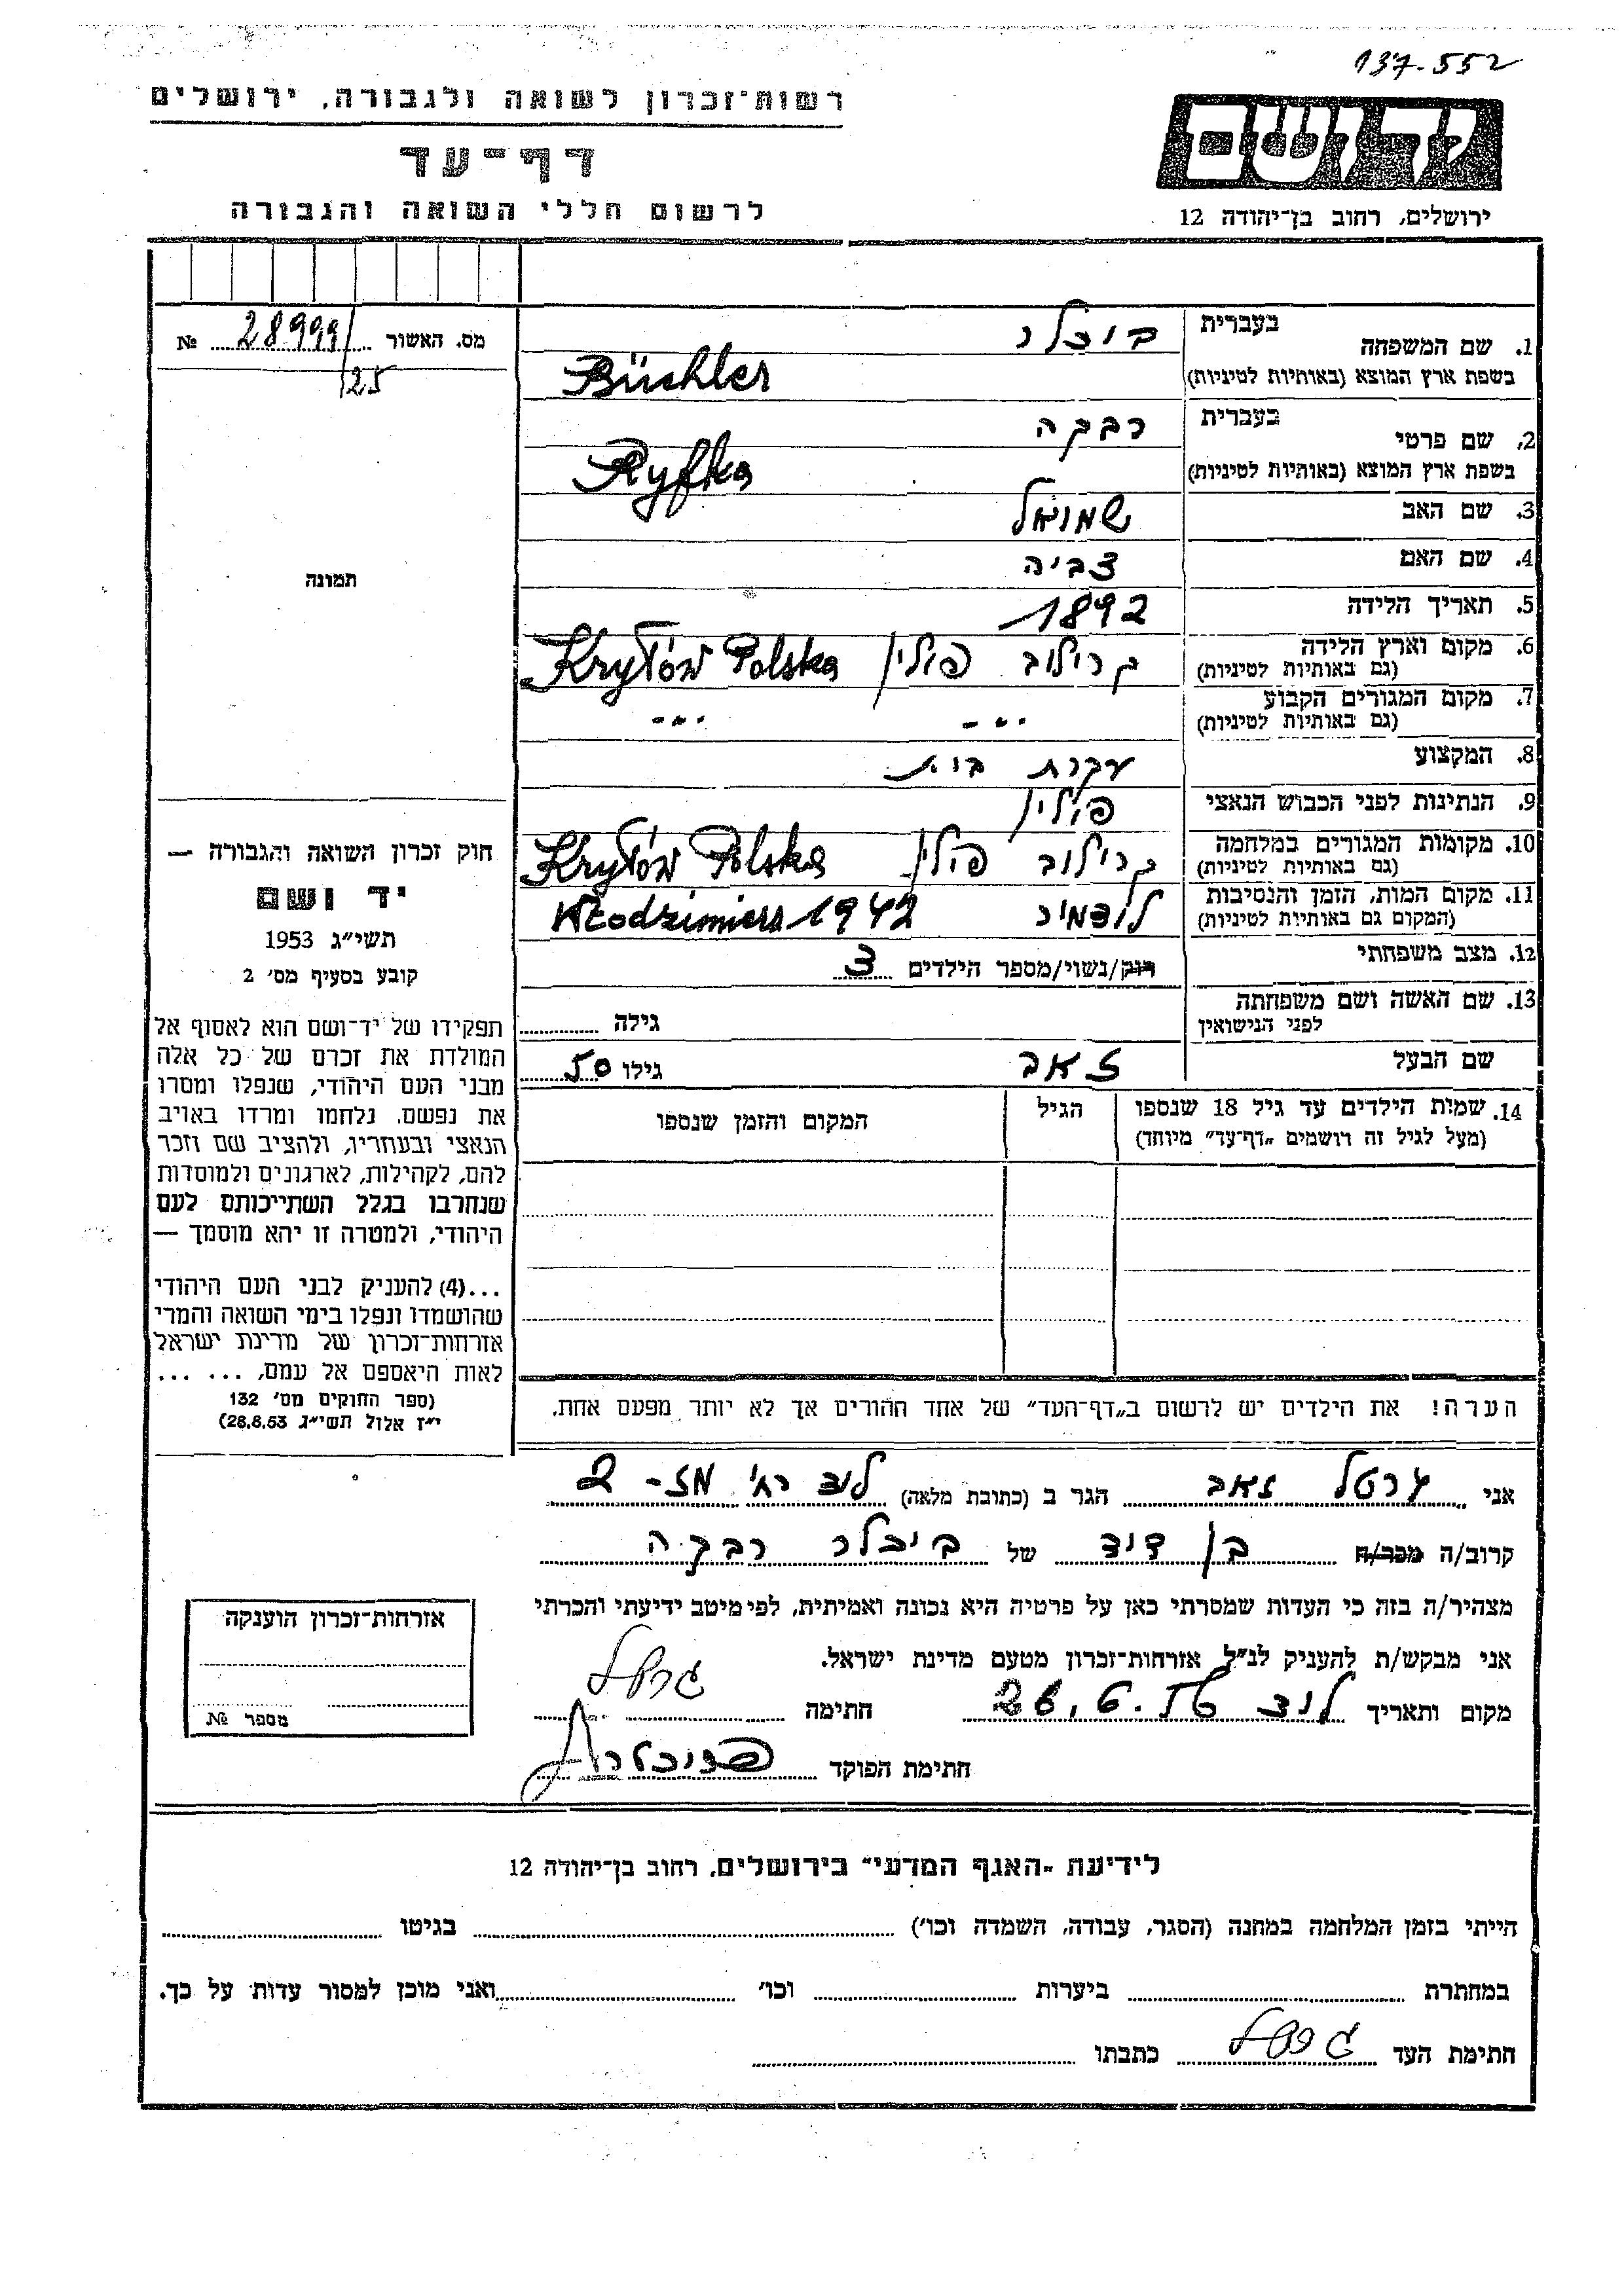 137-552
רשות־זכרון לשואה ולגבורה, ירושלים
דף־עד
לרשום חללי השואה והגבורה
יד ושם
ירושלים, רחוב בן־יהודה 12
מס. האשור 28999/ №
125
תמונה
1. שם המשפחה בעברית בוכלר
בשפת ארץ המוצא (באותיות לטיניות) Büchler
2. שם פרטי בעברית רבקה
בשפת ארץ המוצא (באותיות לטיניות) Ryfka
3. שם האב שמואל
4. שם האם צביה
5. תאריך הלידה 1892
6. מקום וארץ הלידה קרילוב פולין Kryłów Polska
(גם באותיות לטיניות)
7. מקום המגורים הקבוע -"- -"-
(גם באותיות לטיניות)
8. המקצוע עקרת בית
9. הנתינות לפני הכבוש הנאצי פולין
10. מקומות המגורים במלחמה קרילוב פולין Kryłów Polska
(גם באותיות לטיניות)
11. מקום המות, הזמן והנסיבות לודמיר Włodzimierz 1942
(המקום גם באותיות לטיניות)
12. מצב משפחתי רוק/נשוי/מספר הילדים 3
13. שם האשה ושם משפחתה גילה
לפני הנישואין
שם הבעל זאב גילו 50
14. שמות הילדים עד גיל 18 שנספו הגיל המקום והזמן שנספו
(מעל לגיל זה רושמים „דף־עד" מיוחד)
הערה! את הילדים יש לרשום ב„דף־העד" של אחד ההורים אך לא יותר מפעם אחת.
חוק זכרון השואה והגבורה —
יד ושם
תשי״ג 1953
קובע בסעיף מס׳ 2
תפקידו של יד־ושם הוא לאסוף אל
המולדת את זכרם של כל אלה
מבני העם היהודי, שנפלו ומסרו
את נפשם, נלחמו ומרדו באויב
הנאצי ובעוזריו, ולהציב שם וזכר
להם, לקהילות, לארגונים ולמוסדות
שנחרבו בגלל השתייכותם לעם
היהודי, ולמטרה זו יהא מוסמך —
...(4) להעניק לבני העם היהודי
שהושמדו ונפלו בימי השואה והמרי
אזרחות־זכרון של מדינת ישראל
לאות היאספם אל עמם, ... ...
(ספר החוקים מס׳ 132
י״ז אלול תשי״ג 28.8.53)
אני זאב הגר ב (כתובת מלאה) לוד
קרוב/ה מכר/ה בן דוד של ביכלר רבקה
מצהיר/ה בזה כי העדות שמסרתי כאן על פרטיה היא נכונה ואמיתית, לפי מיטב ידיעתי והכרתי
אני מבקש/ת להעניק לנ״ל אזרחות־זכרון מטעם מדינת ישראל.
מקום ותאריך לוד 26.6.56 חתימה
חתימת הפוקד
אזרחות־זכרון הוענקה
מספר №
לידיעת „האגף המדעי" בירושלים, רחוב בן־יהודה 12
הייתי בזמן המלחמה במחנה (הסגר, עבודה, השמדה וכו׳) בגיטו
במחתרת ביערות וכו׳ ואני מוכן למסור עדות על כך.
חתימת העד כתבתו